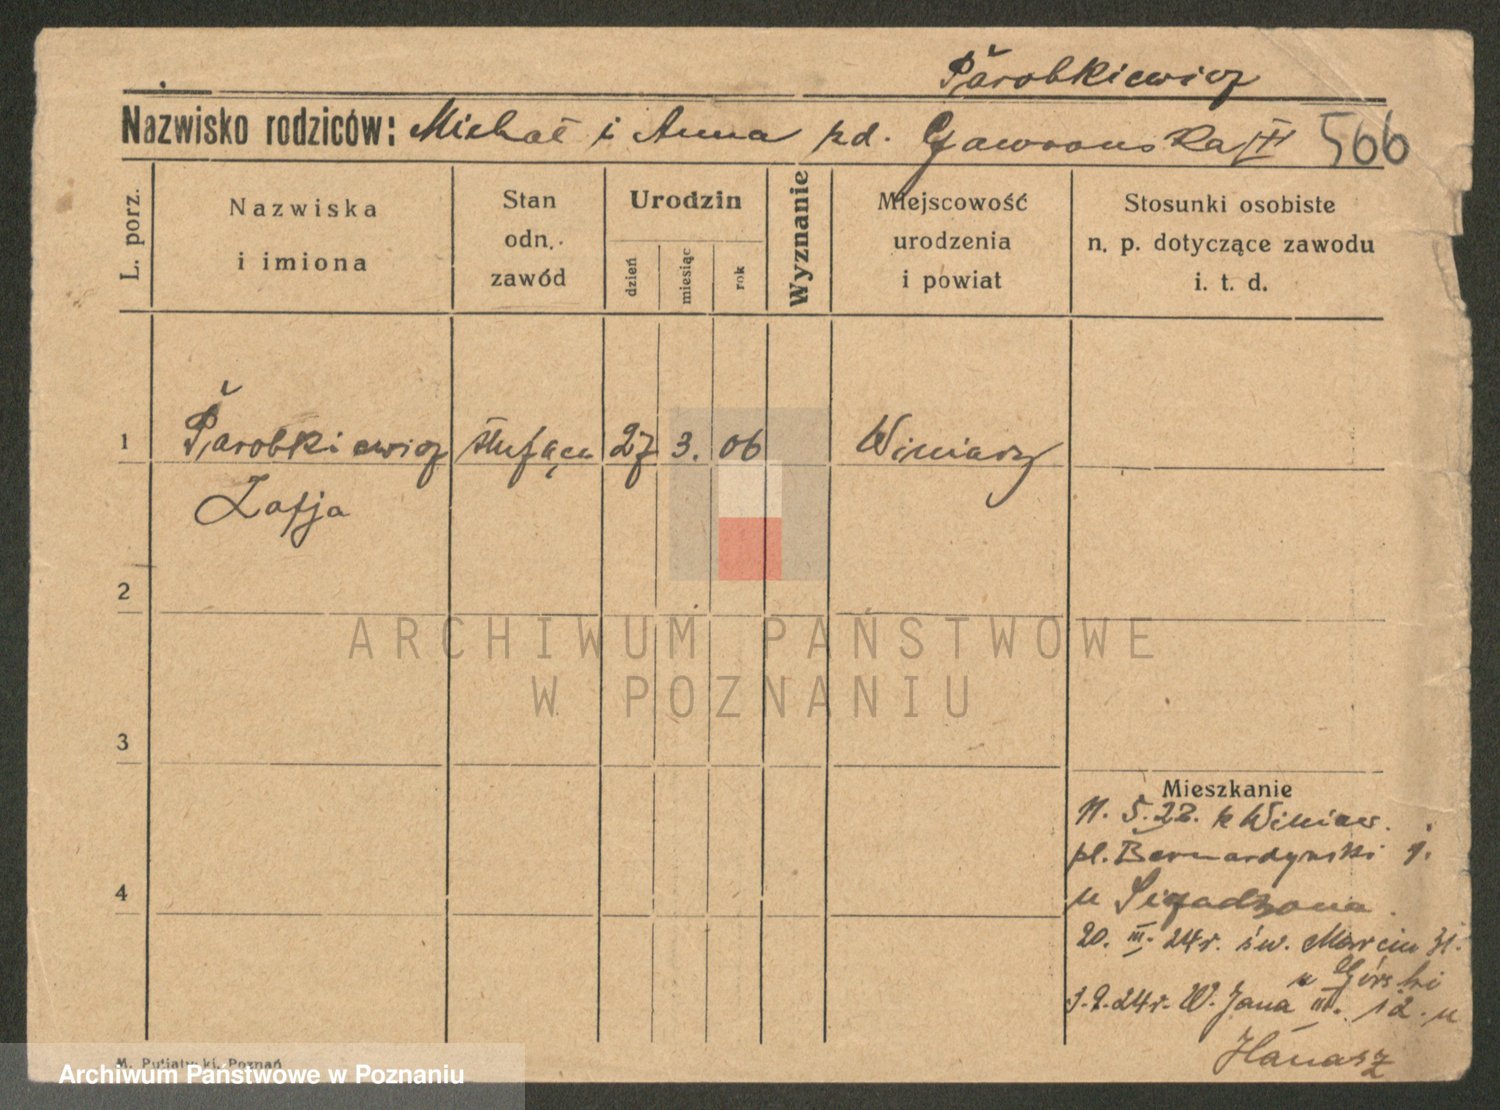 Părobkiewicz
Nazwisko rodziców: Michał i Anna zd. Gawrońska 566
L. porz.
Nazwiska
i imiona
Stan
odn.
zawód
Urodzin
dzień
miesiąc
rok
Wyznanie
Miejscowość
urodzenia
i powiat
Stosunki osobiste
n. p. dotyczące zawodu
i. t. d.
1 Părobkiewicz służąca 27 3. 06 Winiary
Zofja
2
ARCHIWUM PAŃSTWOWE
W POZNANIU
3
Mieszkanie
11. 5. 22. z Winiar.
pl. Bernardyński 1.
4
u
20. III. 24r. św. Marcin 31.
u Górski
3.2.24r. W. Jana III. 12. u
Hanasz
M. Putiatycki, Poznań
Archiwum Państwowe w Poznaniu